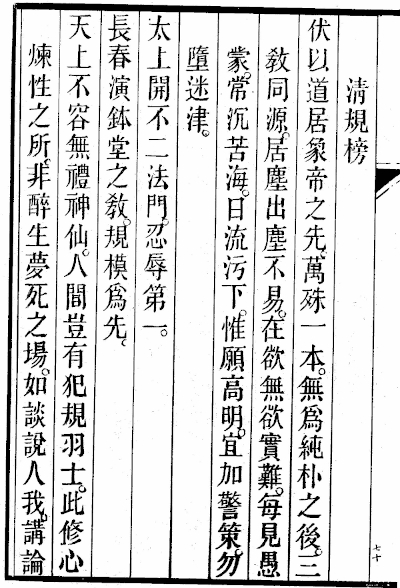 清規榜
伏以道居象帝之先。萬殊一本。無爲純朴之後。三
敎同源。居塵出塵不易。在欲無欲實難。每見愚
蒙。常沉苦海。日流污下。惟願高明。宜加警策。勿
墮迷津。
太上開不二法門。忍辱第一。
長春演鉢堂之敎。規模爲先。
天上不容無禮神仙。人間豈有犯規羽士。此修心
煉性之所。非醉生夢死之場。如談說人我。講論
七十